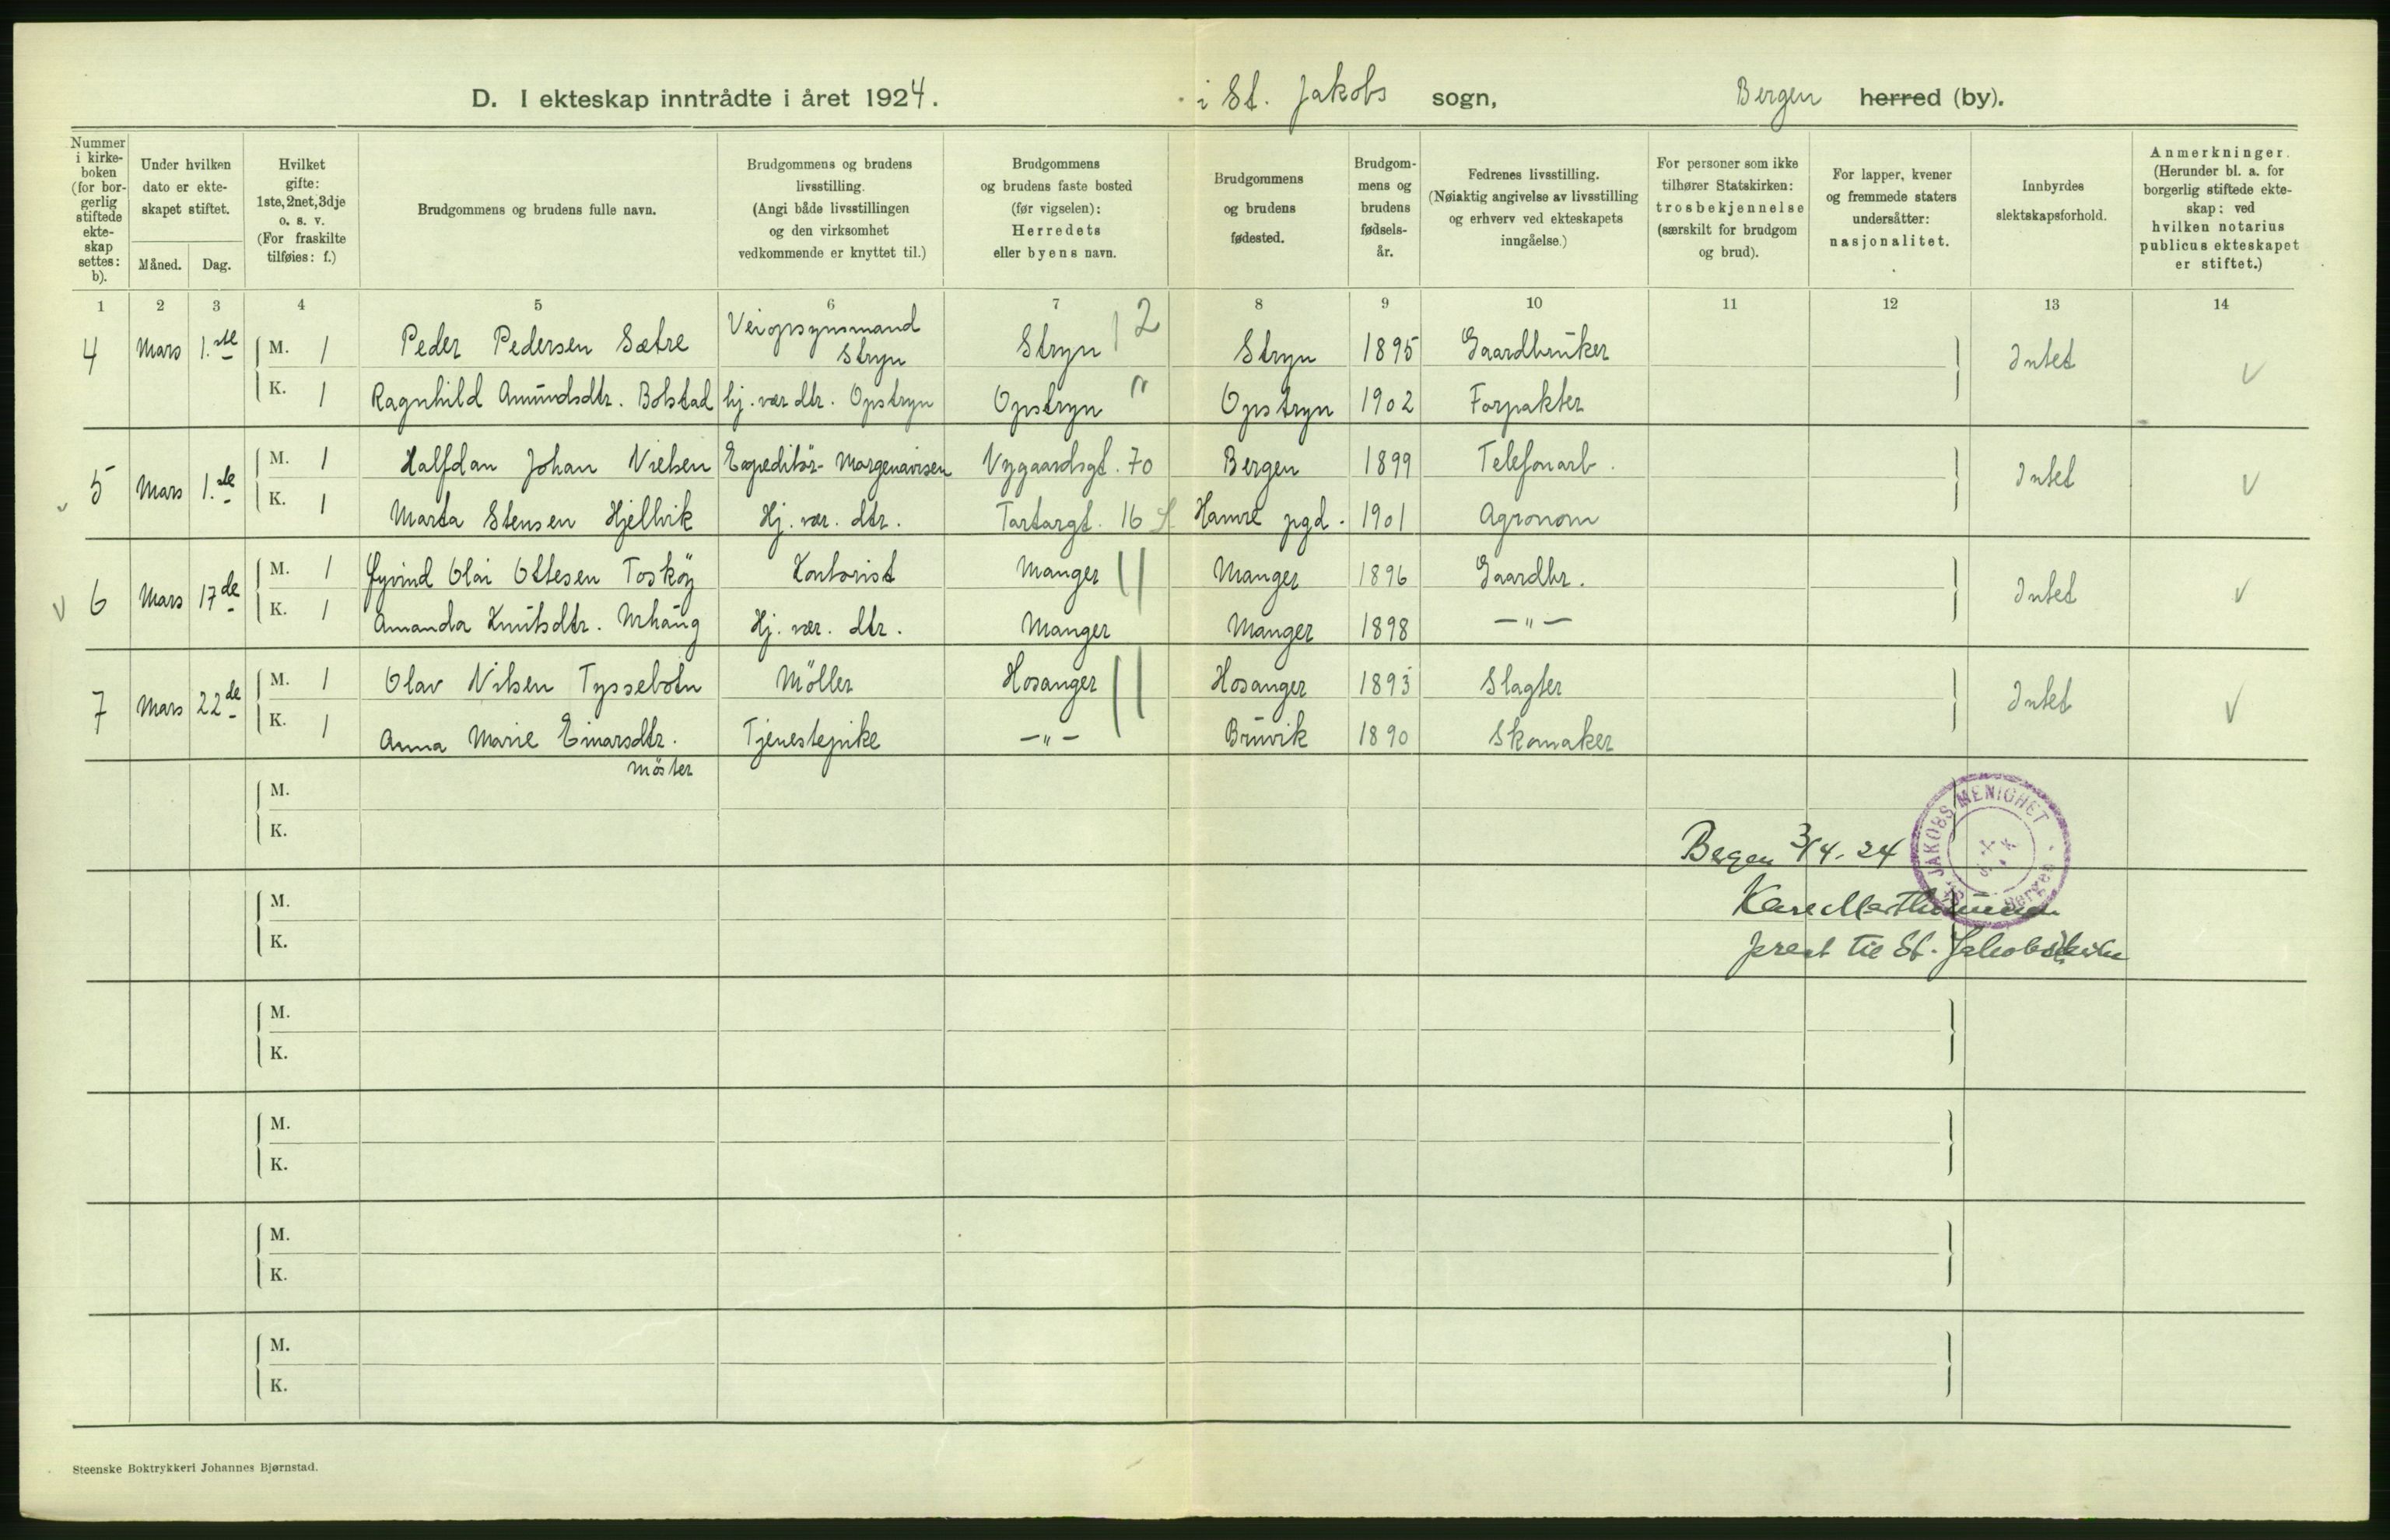 D. I ekteskap inntrådte i året 1924. i St. Jakobs sogn, Bergen herred (by).
Nummer i kirke-boken (for bor-gerlig stiftede ekte-skap settes: b).
Under hvilken dato er ekte-skapet stiftet.
Måned. Dag.
Hvilket gifte: 1ste, 2net, 3dje o. s. v. (For fraskilte tilføies: f.)
Brudgommens og brudens fulle navn.
Brudgommens og brudens livsstilling. (Angi både livsstillingen og den virksomhet vedkommende er knyttet til.)
Brudgommens og brudens faste bosted (før vigselen): Herredets eller byens navn.
Brudgommens og brudens fødested.
Brudgom-mens og brudens fødsels-år.
Fedrenes livsstilling. (Nøiaktig angivelse av livsstilling og erhverv ved ekteskapets inngåelse.)
For personer som ikke tilhører Statskirken: trosbekjennelse (særskilt for brudgom og brud).
For lapper, kvener og fremmede staters undersåtter: nasjonalitet.
Innbyrdes slektskapsforhold.
Anmerkninger. (Herunder bl. a. for borgerlig stiftede ekte-skap: ved hvilken notarius publicus ekteskapet er stiftet.)
1 2 3 4 5 6 7 8 9 10 11 12 13 14
4 Mars 1.ste M. 1 Peder Pedersen Sætre Veiopsynsmand Stryn Stryn 12 Stryn 1895 Gaardbruker Intet
K. 1 Ragnhild Amundsdtr. Bolstad hj. vær dtr. Opstryn Opstryn " Opstryn 1902 Forpakter
5 Mars 1.ste M. 1 Halfdan Johan Nielsen Expeditör- Morgenavisen Nygaardsgt. 70 Bergen 1899 Telefonarb. Intet
K. 1 Marta Stensen Hjellvik Hj. vær. dtr. Tartargt. 16 Hamre pgd. 1901 Agronom
6 Mars 17de M. 1 Øyvind Olai Ottesen Tosköy Kontorist Manger Manger 1896 Gaardbr. Intet
K. 1 Amanda Knutsdtr. Hj. vær. dtr. Manger Manger 1898 — " —
7 Mars 22de M. 1 Olav Nilsen Tyssebotn Möller Hosanger Hosanger 1893 Slagter Intet
K. 1 Anna Marie Einarsdtr. Möster Tjenestepike — " — Bruvik 1890 Skomaker
M.
K.
Bergen 3/4. 24
ST. JAKOBS MENIGHET · Bergen
M.
K.
prest til St. Jakobskirke
M.
K.
M.
K.
M.
K.
M.
K.
Steenske Boktrykkeri Johannes Bjørnstad.